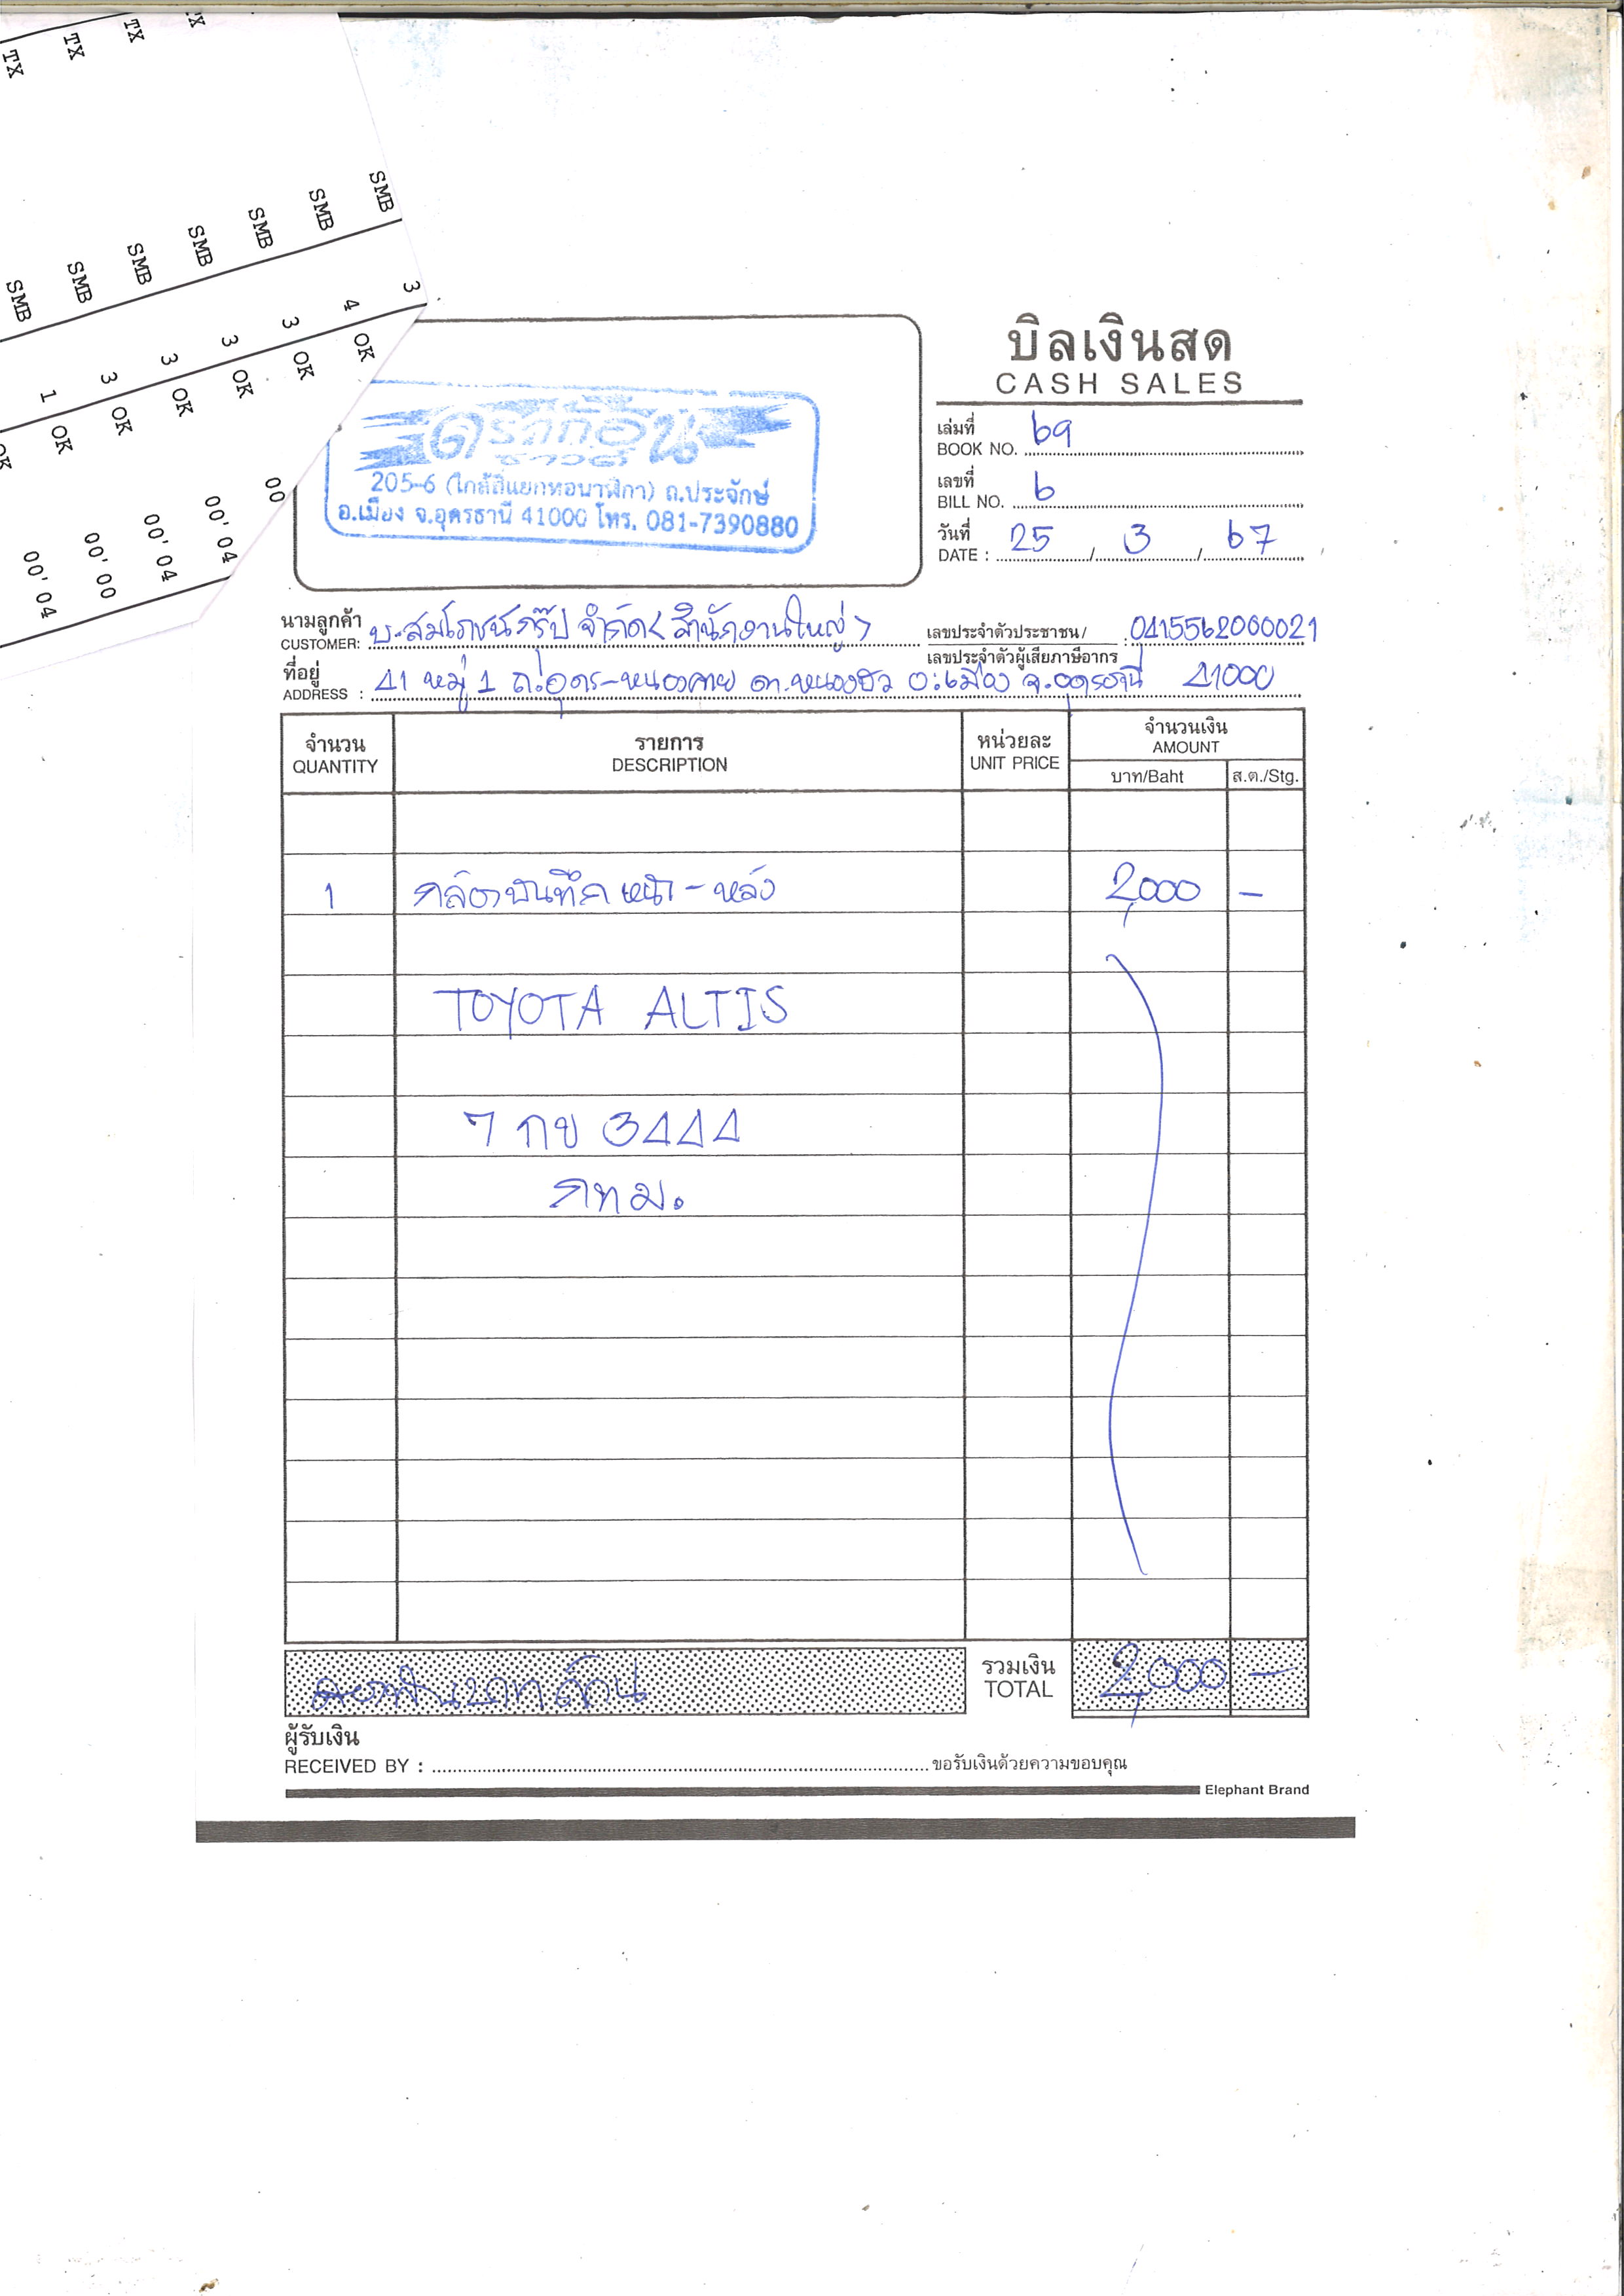 TX TX TX TX
SMB SMB SMB SMB SMB SMB SMB
1 3 3 3 3 4 3
OK OK OK OK OK OK OK
00'04 00'00 00'04 00'04 00
บิลเงินสด
CASH SALES
ดราก้อน
ซาวด์
205-6 (ใกล้สี่แยกหอนาฬิกา) ถ.ประจักษ์
อ.เมือง จ.อุดรธานี 41000 โทร. 081-7390880
เล่มที่
BOOK NO. 69
เลขที่
BILL NO. 6
วันที่
DATE : 25 / 3 / 67
นามลูกค้า
CUSTOMER: บ.สมโภชน์กรุ๊ป จำกัด < สำนักงานใหญ่ >
เลขประจำตัวประชาชน/
เลขประจำตัวผู้เสียภาษีอากร : 0415562000021
ที่อยู่
ADDRESS : 41 หมู่ 1 ถ.อุดร-หนองคาย ต.หนองบัว อ.เมือง จ.อุดรธานี 41000
จำนวน รายการ หน่วยละ จำนวนเงิน
QUANTITY DESCRIPTION UNIT PRICE AMOUNT
บาท/Baht ส.ต./Stg.
1 กล้องบันทึก หน้า - หลัง 2,000 -
TOYOTA ALTIS
7 กข 3444
กทม.
สองพันบาทถ้วน รวมเงิน 2,000 -
TOTAL
ผู้รับเงิน
RECEIVED BY : ขอรับเงินด้วยความขอบคุณ
Elephant Brand